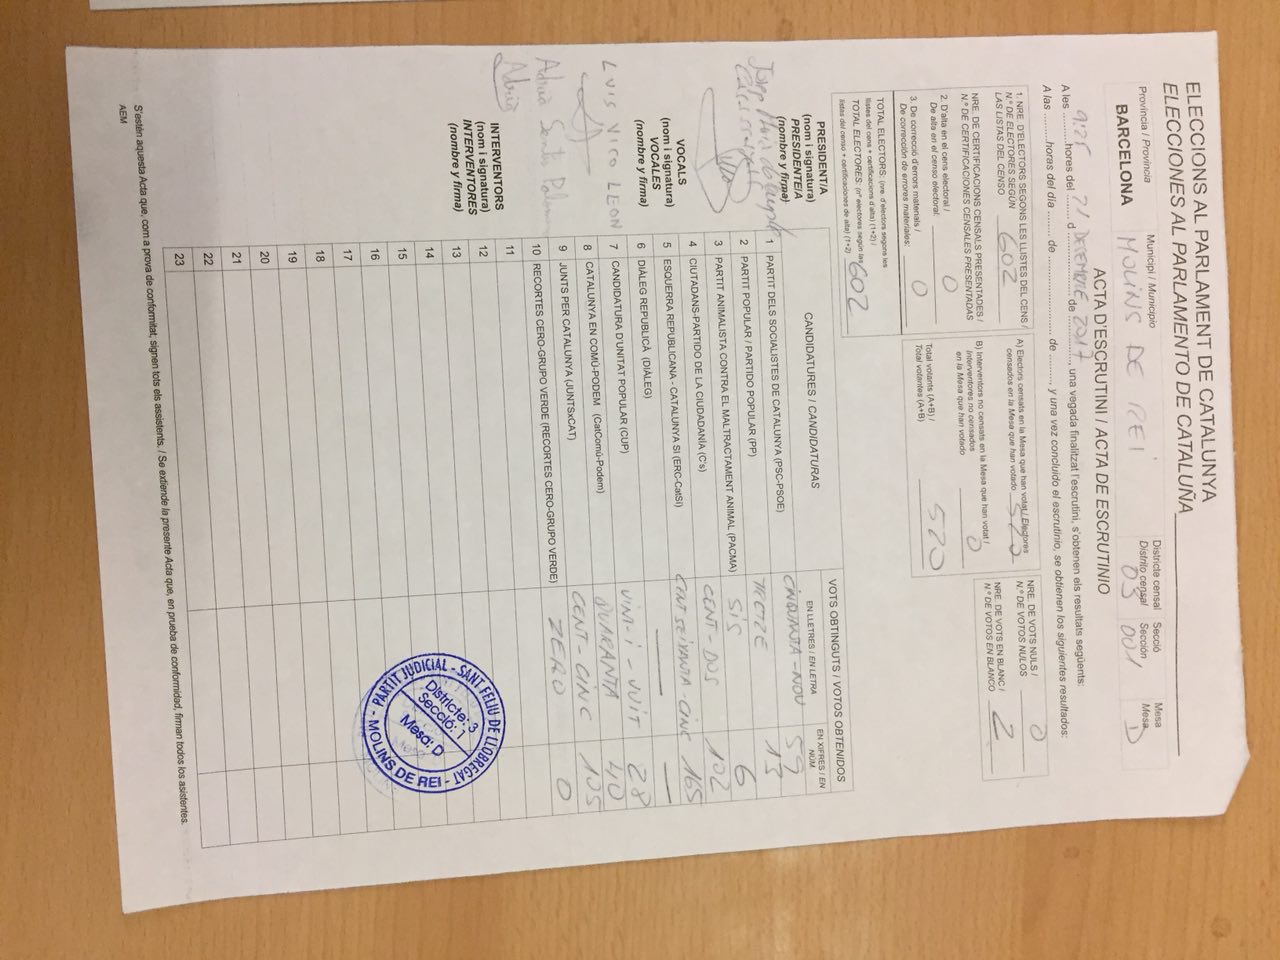 ELECCIONS AL PARLAMENT DE CATALUNYA
ELECCIONES AL PARLAMENTO DE CATALUÑA
Província / Provincia
BARCELONA
Municipi / Municipio
MOLINS DE REI
Districte censal
Distrito censal
03
Secció
Sección
001
Mesa
Mesa
D
ACTA D'ESCRUTINI / ACTA DE ESCRUTINIO
9:25 21 DESEMBRE 2017
A les ............hores del ........ d .................... de ............, una vegada finalitzat l'escrutini, s'obtenen els resultats següents:
A las ............horas del día ........ de .................... de ........, y una vez concluido el escrutinio, se obtienen los siguientes resultados:
1. NRE. D'ELECTORS SEGONS LES LLISTES DEL CENS /
N.º DE ELECTORES SEGÚN
LAS LISTAS DEL CENSO 602
NRE. DE CERTIFICACIONS CENSALS PRESENTADES /
N.º DE CERTIFICACIONES CENSALES PRESENTADAS
2. D'alta en el cens electoral /
De alta en el censo electoral: 0
3. De correcció d'errors materials /
De corrección de errores materiales: 0
TOTAL ELECTORS: (nre. d'electors segons les
llistes del cens + certificacions d'alta) (1+2) /
TOTAL ELECTORES: (nº electores según las
listas del censo + certificaciones de alta) (1+2) 602
A) Electors censats en la Mesa que han votat / Electores
censados en la Mesa que han votado 520
B) Interventors no censats en la Mesa que han votat /
Interventores no censados
en la Mesa que han votado 0
Total votants (A+B) /
Total votantes (A+B) 520
NRE. DE VOTS NULS /
N.º DE VOTOS NULOS 0
NRE. DE VOTS EN BLANC /
N.º DE VOTOS EN BLANCO 2
CANDIDATURES / CANDIDATURAS
VOTS OBTINGUTS / VOTOS OBTENIDOS
EN LLETRES / EN LETRA
EN XIFRES / EN NÚM
1 PARTIT DELS SOCIALISTES DE CATALUNYA (PSC-PSOE) CINQUANTA-NOU 59
2 PARTIT POPULAR / PARTIDO POPULAR (PP) TRETZE 13
3 PARTIT ANIMALISTA CONTRA EL MALTRACTAMENT ANIMAL (PACMA) SIS 6
4 CIUTADANS-PARTIDO DE LA CIUDADANÍA (C's) CENT-DOS 102
5 ESQUERRA REPUBLICANA - CATALUNYA SÍ (ERC-CatSí) CENT SEIXANTA-CINC 165
6 DIÀLEG REPUBLICÀ (DIÀLEG) — —
7 CANDIDATURA D'UNITAT POPULAR (CUP) VINT-I-VUIT 28
8 CATALUNYA EN COMÚ-PODEM (CatComú-Podem) QUARANTA 40
9 JUNTS PER CATALUNYA (JUNTSxCAT) CENT-CINC 105
10 RECORTES CERO-GRUPO VERDE (RECORTES CERO-GRUPO VERDE) ZERO 0
11
12
13
14
15
16
17
18
19
20
21
22
23
PRESIDENT/A
(nom i signatura)
PRESIDENTE/A
(nombre y firma)
VOCALS
(nom i signatura)
VOCALES
(nombre y firma)
LUIS VICO LEON
Adrià
Adrià
INTERVENTORS
(nom i signatura)
INTERVENTORES
(nombre y firma)
PARTIT JUDICIAL - SANT FELIU DE LLOBREGAT -
Districte: 3
Secció: 1
Mesa: D
- MOLINS DE REI -
S'estén aquesta Acta que, com a prova de conformitat, signen tots els assistents. / Se extiende la presente Acta que, en prueba de conformidad, firman todos los asistentes.
AEM